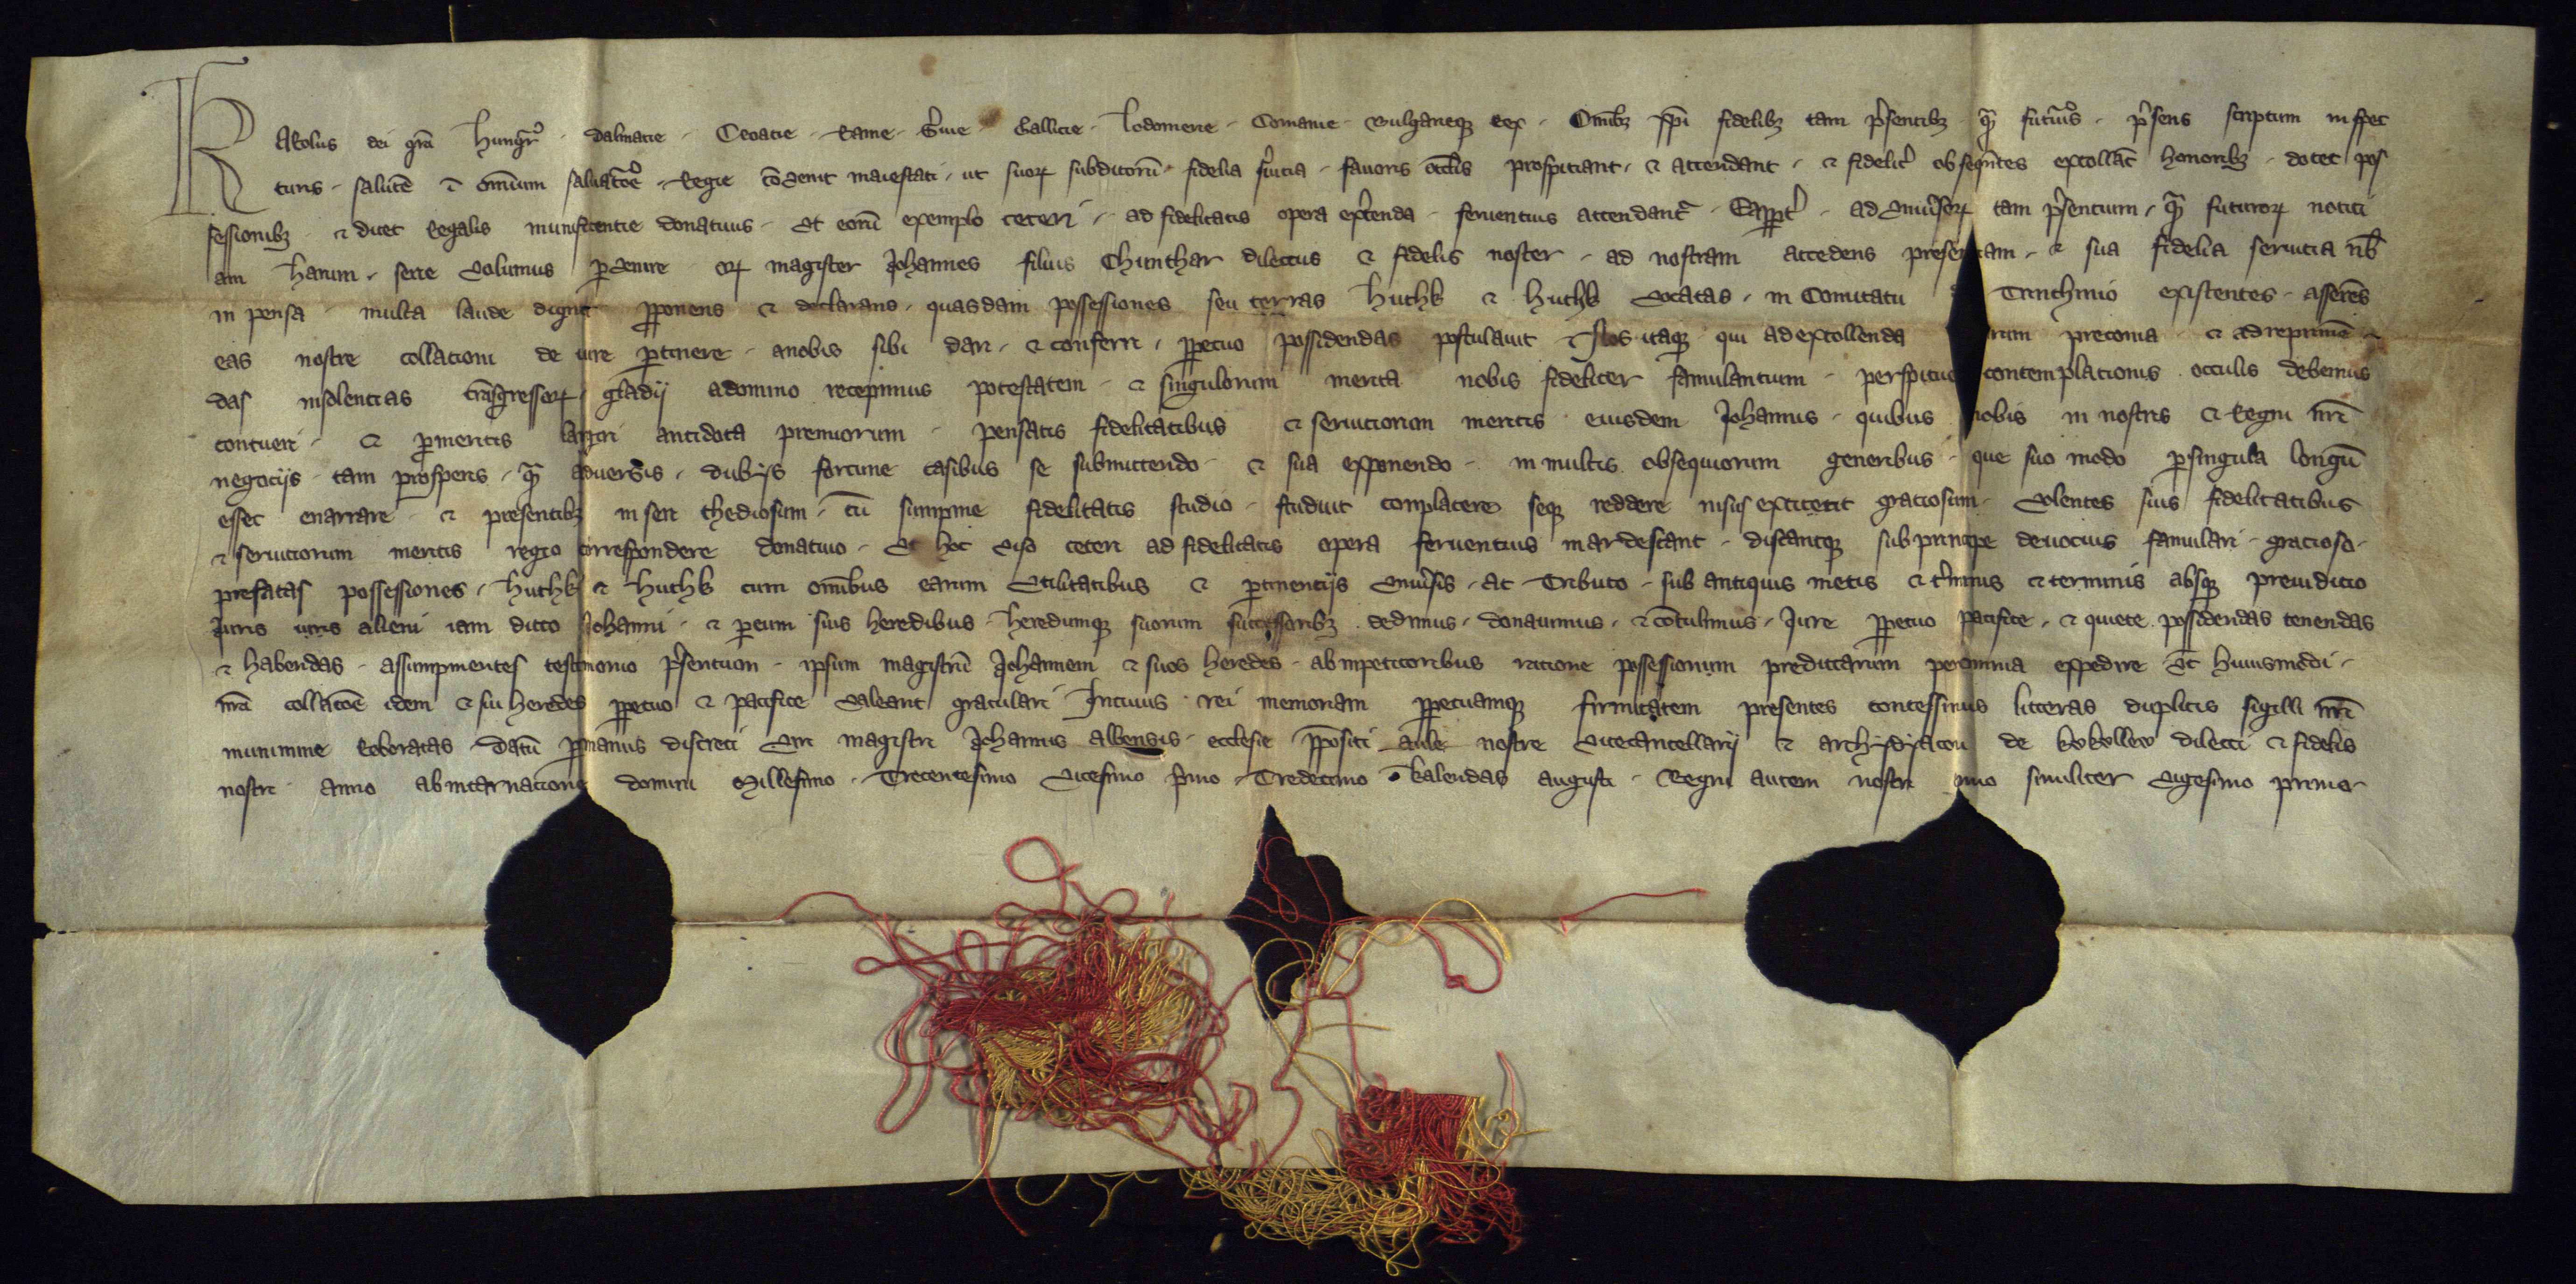 KARolus dei gr̄a Hungar̄ · dalmatie · Croatie · Rame · S͛uie · Gallicie · Lodomerie · Comanie · Bulgarieqꝫ Rex · Om̄ibꝫ xp̄i fidelibꝫ tam p͛sentibꝫ qͣ futuris · p͛sens scriptum inspec
turis · salutē ī omnium saluatore · Regie cōuenit maiestati · ut suoꝝ subditorū · fidelia s͛uitia · fauoris oculis prospitiant · ⁊ attendant · ⁊ fidelit͛ obseqn̄tes extollat honoribꝫ · dotet pos
sessionibꝫ · ⁊ ditet Regalis munificentie donatiuis · Et eorū exemplo ceteri · ad fidelitatis opera ex͛cenda · feruentius accendant᷑ · Eapp̄t͛ · ad vniu͛soꝝ tam p͛sentium · qͣ futuroꝝ notici
am harum · serie volumus ꝑuenire · qꝫ magister Johannes filius Chunthar dilectus ⁊ fidelis noster · ad nostram accedens presentiam · ⁊ sua fidelia seruitia nob̄
inpensa · multa laude digna ꝓponens ⁊ declarans · quasdam possessiones seu terras huthk ⁊ huthk vocatas · in Comitatu d Trinchinio existentes · asserēs
eas nostre collationi de iure ꝑtinere · anobis sibi dari · ⁊ conferri · ꝑpetuo possidendas postulauit · Nos itaqꝫ qui ad extollenda rum preconia · ⁊ ad reprimē
das insolentias trāsgressoꝝ · gladij adomino recepimus potestatem · ⁊ singulorum merita nobis fideliter famulantium · perspicue contemplationis occulis debemus
contueri · ⁊ ꝑmeritis largiri antidota premiorum · pensatis fidelitatibus ⁊ seruitiorum meritis eiusdem Johannis · quibus nobis in nostris ⁊ Regni nr̄i
negocijs · tam prosperis · qͣ aduersis · dubijs fortune casibus se submittendo · ⁊ sua exponendo · in multis obsequiorum generibus · que suo modo ꝑsingula longū
esset enarrare · ⁊ presentibꝫ inseri thediosum · cū summe fidelitatis studio · studuit complacere seqꝫ reddere nisus extiterit graciosum · volentes suis fidelitatibus
⁊ seruitiorum meritis regio correspondere donatiuo · Et hoc viso ceteri ad fidelitatis opera feruentius inardescant · discantqꝫ sub principe deuotius famulari · gracioso ·
prefatas possessiones · huthk ⁊ huthk cum om̄ibus earum vtilitatibus ⁊ ꝑtinentijs vniu͛sis · ac Tributo · sub antiquis metis ⁊ t͛minis ⁊ terminis absqꝫ preiuditio
Juris iuris alieni iam dicto Johanni · ⁊ ꝑeum suis heredibus · heredumqꝫ suorum successoribꝫ dedimus · donauimus · ⁊ cōtulimus · Jure ꝑpetuo pacifice · ⁊ quiete possidendas tenendas
⁊ habendas · assumpmentes testimonio p͛sentium · ipsum magistrū Johannem ⁊ suos heredes · ab inpetitoribus ratione possessionum predictarum per omnia expedire Vt huiusmodi ·
nr̄a collatōe idem ⁊ sui heredes ꝑpetuo ⁊ pacifice valeant gratulari In cuius rei memoriam ꝑpetuamqꝫ firmitatem presentes concessimus litteras duplicis sigilli nr̄i
munimine Roboratas · Datū ꝑ manus discreti viri magistri Johannis albensis · ecclesie p̄positi aule nostre vicecancellarij ⁊ archydyaconi de kvkvllev dilecti ⁊ fidelis
nostri · anno ab incarnatione domini Millesimo · Trecentesimo vicesimo p͛mo · Tredecimo kalendas augusti · Regni autem nostri anno similiter vigesimo primo ·